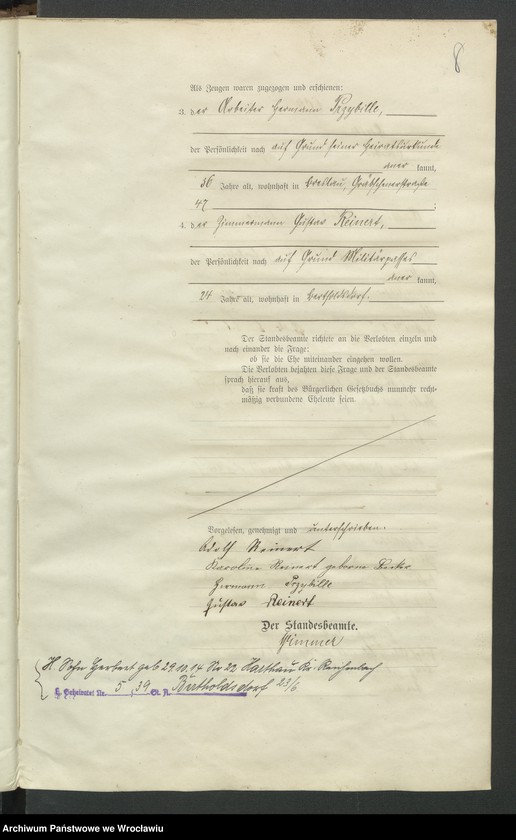 8
Als Zeugen waren zugezogen und erschienen:
3. der Arbeiter Hermann Przybille,
der Persönlichkeit nach auf Grund seiner Heiratsurkunde
aner kannt,
36 Jahre alt, wohnhaft in Breslau, Gräbschenerstraße
47 ;
4. der Zimmermann Gustav Reinert,
der Persönlichkeit nach auf Grund Militärpasses
aner kannt,
24 Jahre alt, wohnhaft in Bertholdsdorf.
Der Standesbeamte richtete an die Verlobten einzeln und
nach einander die Frage:
ob sie die Ehe miteinander eingehen wollen.
Die Verlobten bejahten diese Frage und der Standesbeamte
sprach hierauf aus,
daß sie kraft des Bürgerlichen Gesetzbuchs nunmehr recht-
mäßig verbundene Eheleute seien.
Vorgelesen, genehmigt und unterschrieben.
Adolf Reinert
Karoline Reinert geborne
Hermann Przybille
Gustav Reinert
Der Standesbeamte.
Wimmer
Sohn Herbert geb 29.10.14 No 22 Harthau Kr. Reichenbach
geheiratet Nr. 5/39 St. A. Bertholdsdorf 23/6
Archiwum Państwowe we Wrocławiu